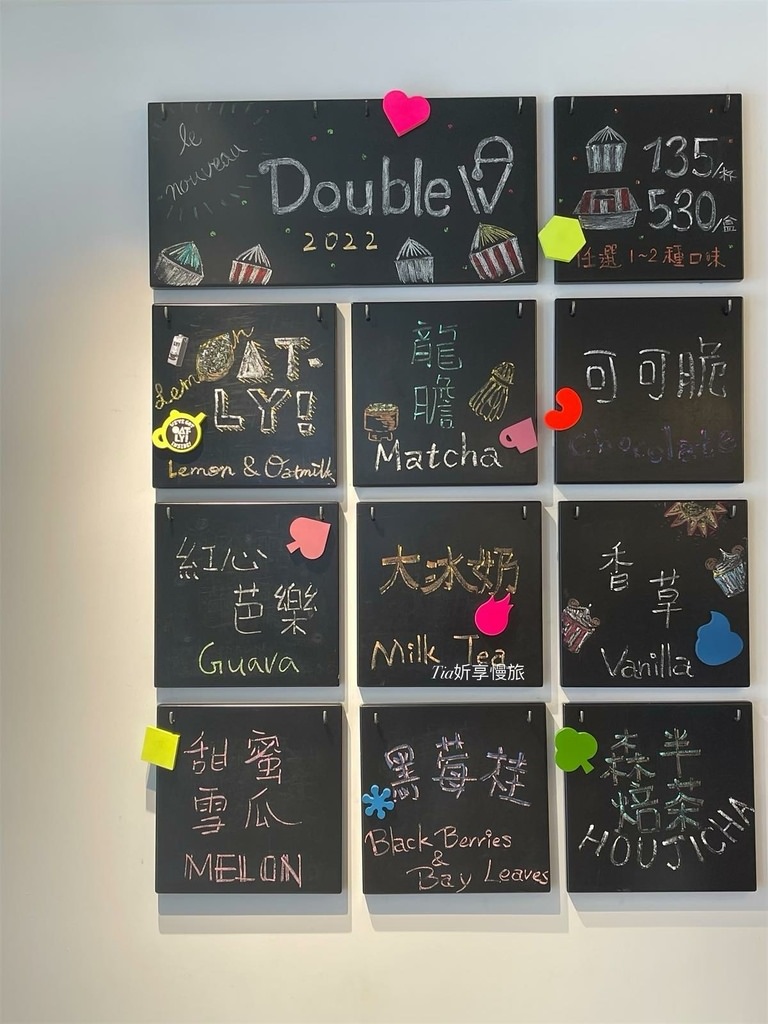 le
nouveau
DoubleW
2022
135/杯
530/盒
任選 1~2 種口味
Lemon
OAT-
LY!
WE'VE GOT
OAT
LY!
INSIDE!
Lemon & Oatmilk
龍
膽
Matcha
可可脆
chocolate
紅心
芭樂
Guava
大冰奶
Milk Tea
Tia妡享慢旅
香
草
Vanilla
甜蜜
雪瓜
MELON
黑莓桂
Black Berries
&
Bay Leaves
森半
焙茶
HOUJICHA